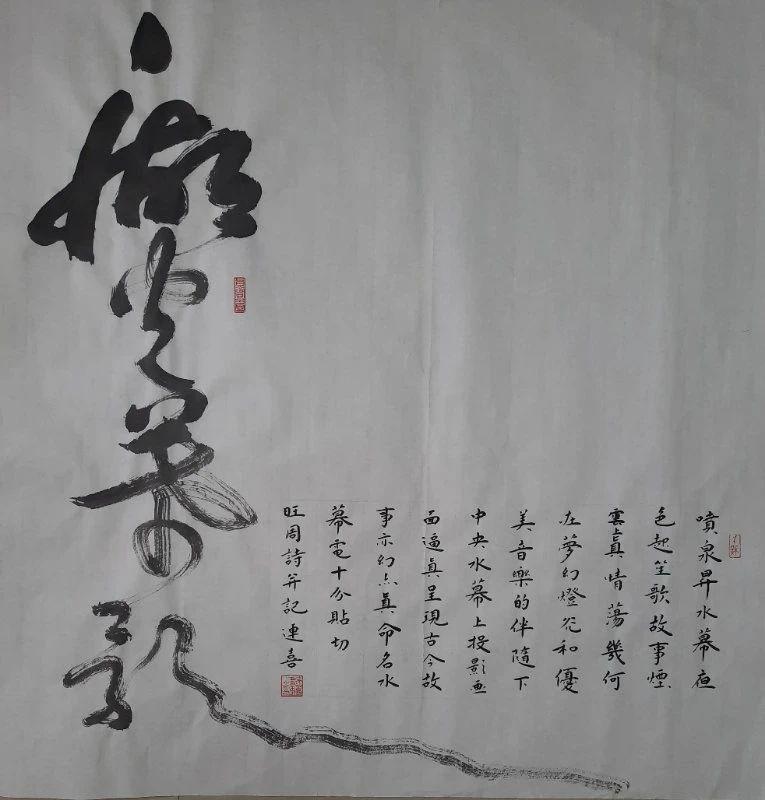 噴泉昇水幕夜
色起笙歌故事煙
雲真情蕩幾何
在夢幻燈光和優
美音樂的伴隨下
中央水幕上投影画
面逼真呈現古今故
事亦幻亦真命名水
幕電十分貼切
旺周詩并記連喜